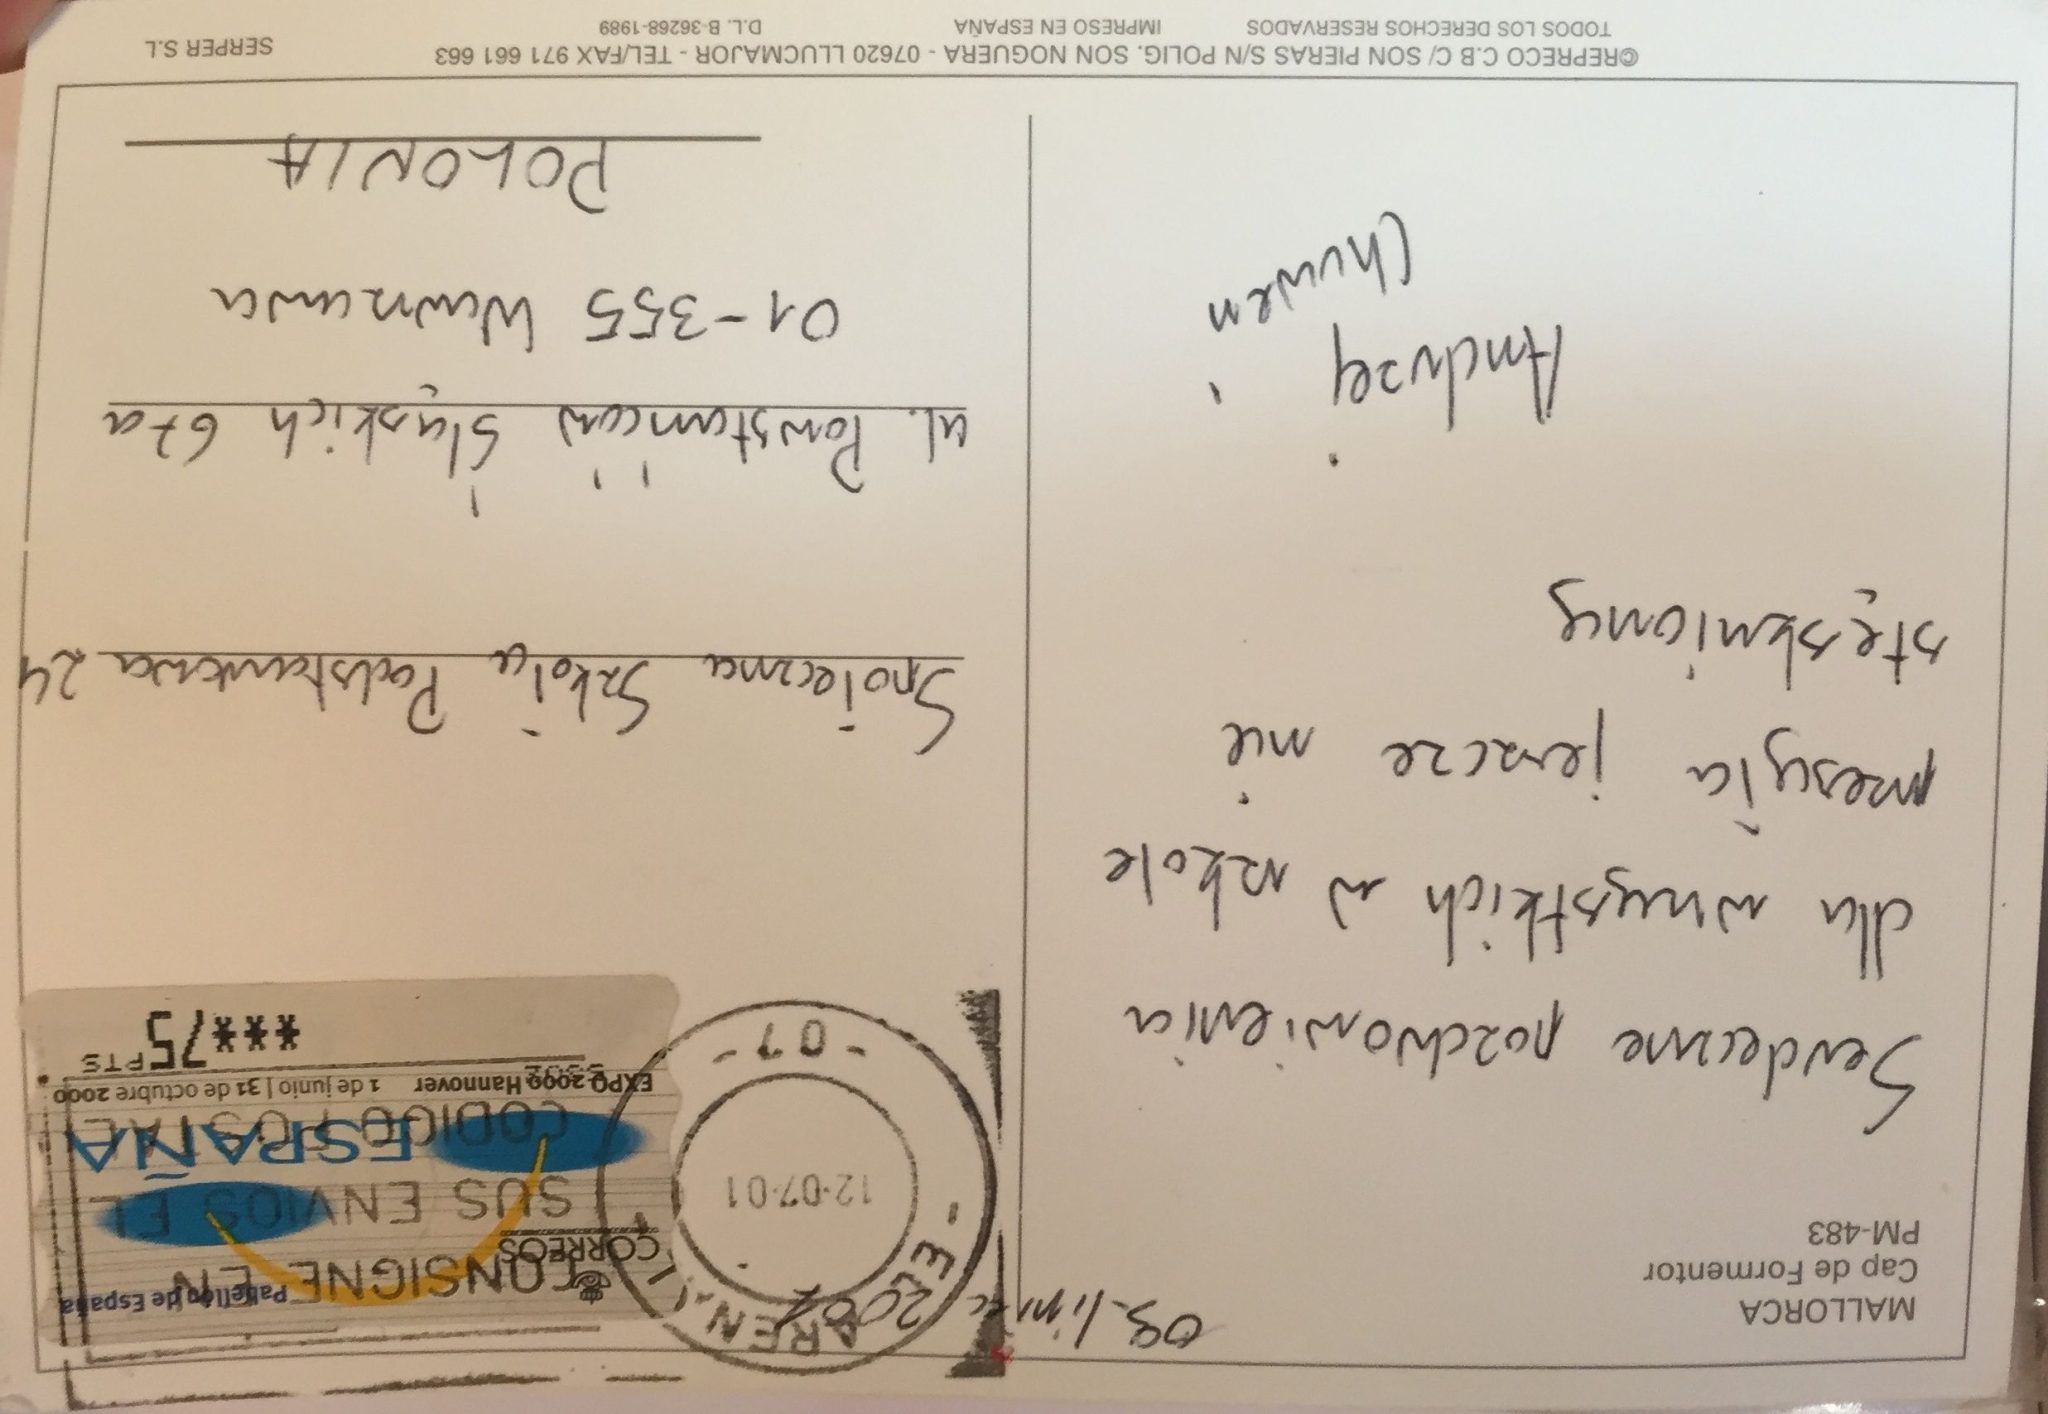 MALLORCA
Cap de Formentor
PM-483
09. lipiec 2001
Serdeczne pozdrowienia
dla wszystkich w szkole
przesyła jeszcze nie
stęskniony
Andrzej
Chuwen
Pabellón de España
CORREOS
CONSIGNE EN
SUS ENVIOS EL
CODIGO POSTAL
ESPAÑA
EXPO 2000 Hannover 1 de junio | 31 de octubre 2000
PTS
***75
- EL ARENAL
12·07·01
- 07 -
Społeczna Szkoła Podstawowa 24
ul. Powstańców Śląskich 67a
01-355 Warszawa
POLONIA
©REPRECO C.B C/ SON PIERAS S/N POLIG. SON NOGUERA - 07620 LLUCMAJOR - TEL/FAX 971 661 663
SERPER S.L
TODOS LOS DERECHOS RESERVADOS IMPRESO EN ESPAÑA D.L. B-36268-1989